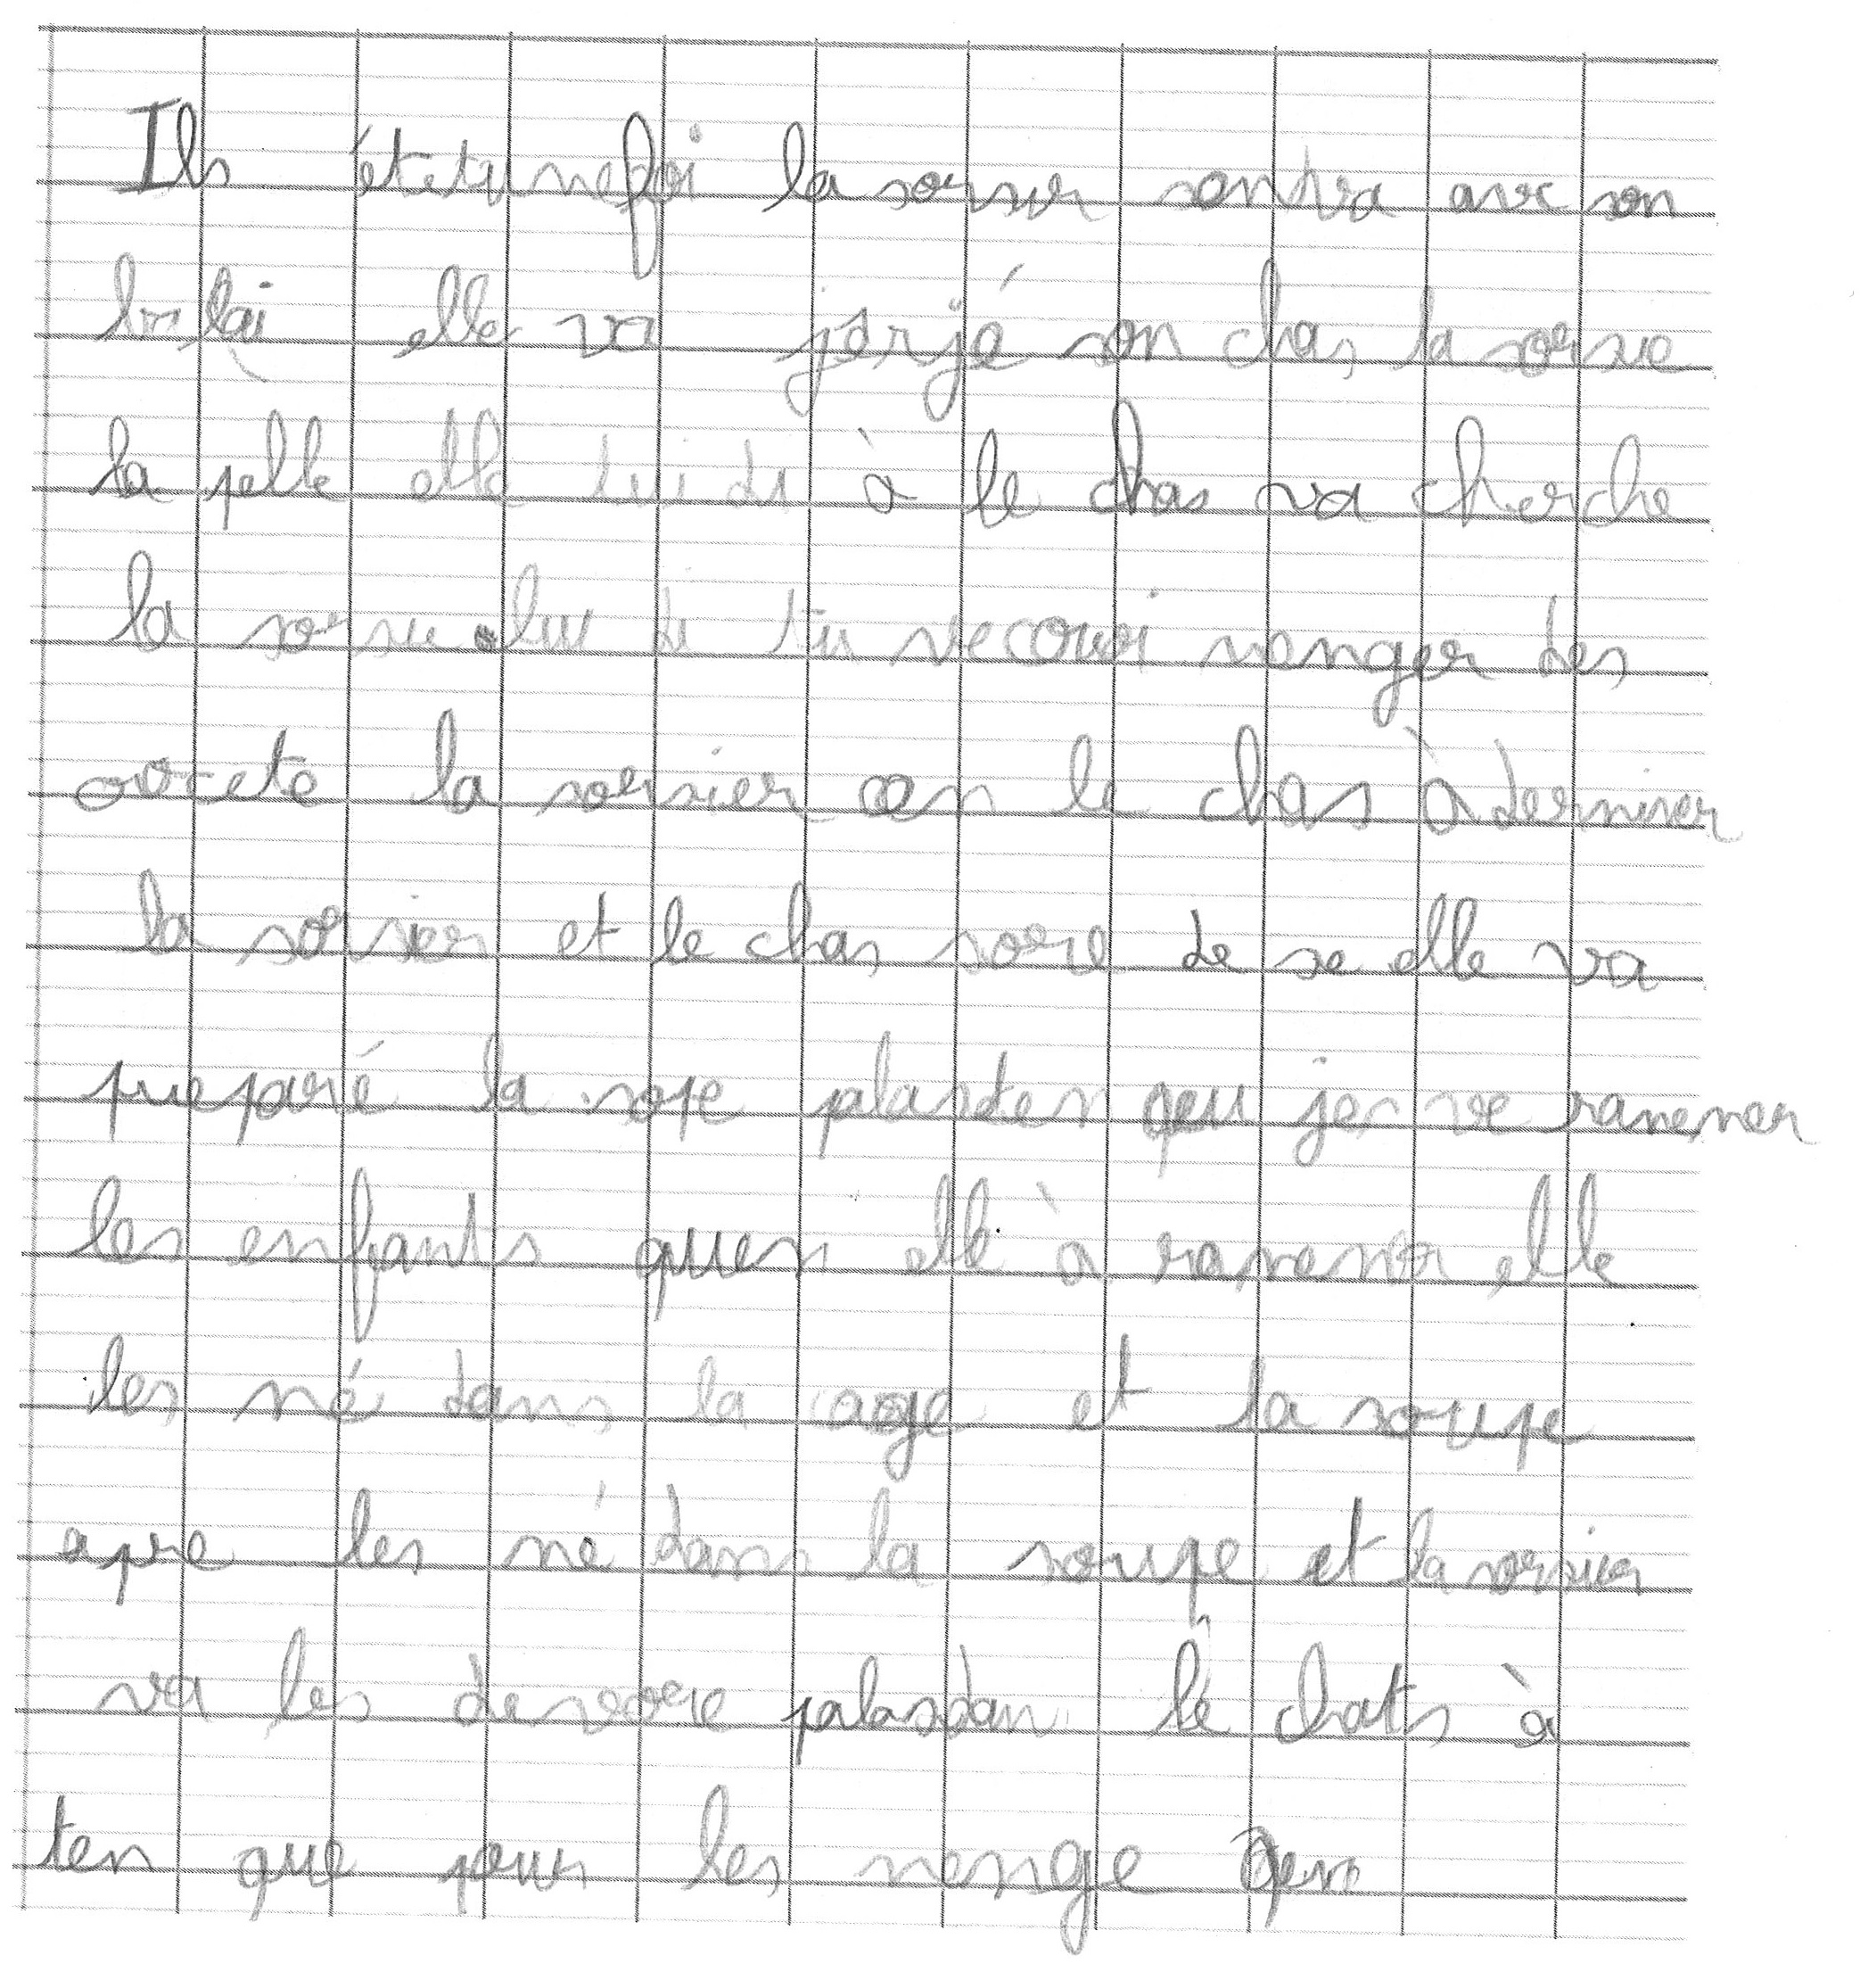 Ils étetunefoi la sorsur sontra avec son
balai elle va jerjé son chas la sorsie
la pelle elle lui di à le chas va cherche
la sorsie lui di tu vecoui menger des
ovocete la sorsier en le chas à derminer
la sorsier et le chas sore de se elle va
preparé la sope plasden qeu jes ve ranener
les enfants quen elle à ranener elle
les mé dans la cage et la soupe
apre les mé dans la soupe et la sorsier
va les devore palasdan le chats à
ten que pour les menge qen